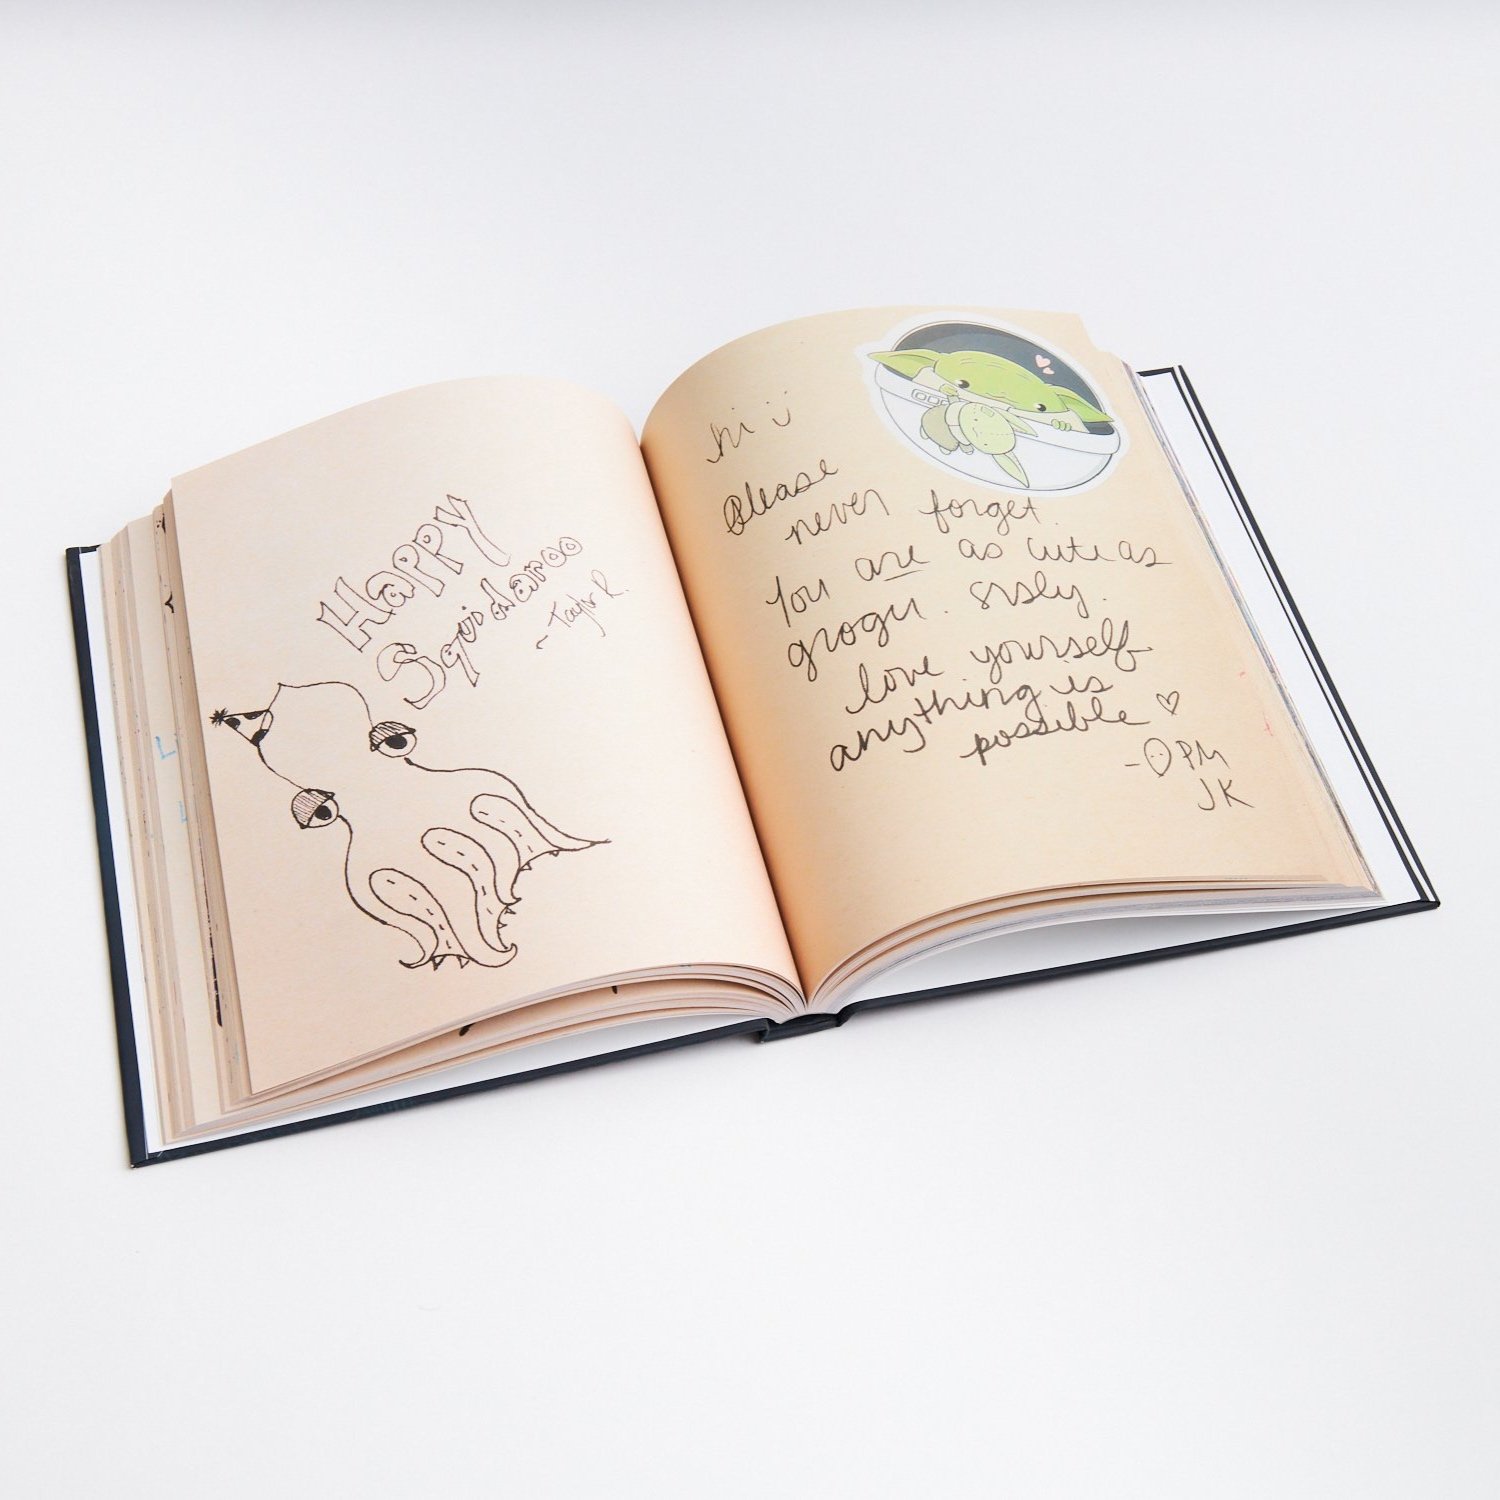 Happy
Squidaroo
~ Taylor R.
hi
Please
never forget.
You are as cute as
grogu. srsly.
love yourself
anything is
possible ♡
- OPM
JK